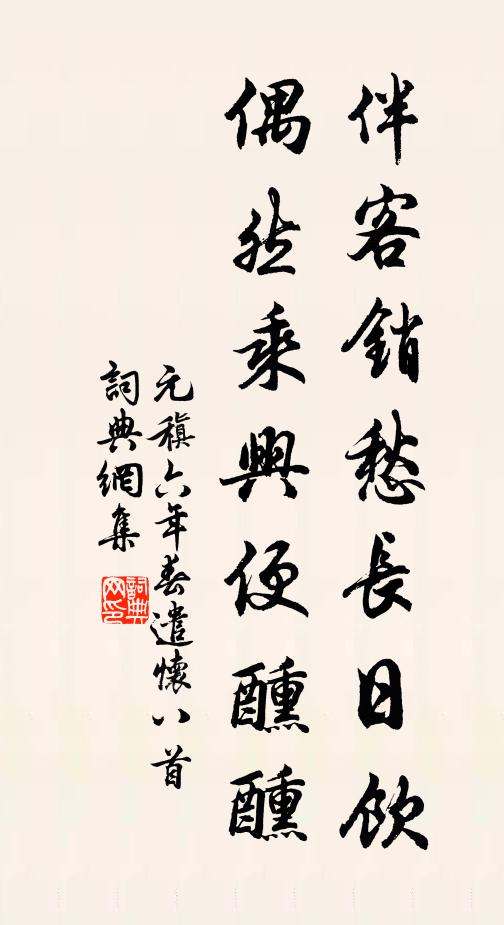 伴客銷愁長日飲
偶然乘興便醺醺
元稹六年春遣懷八首
詞典網集
詞典網印